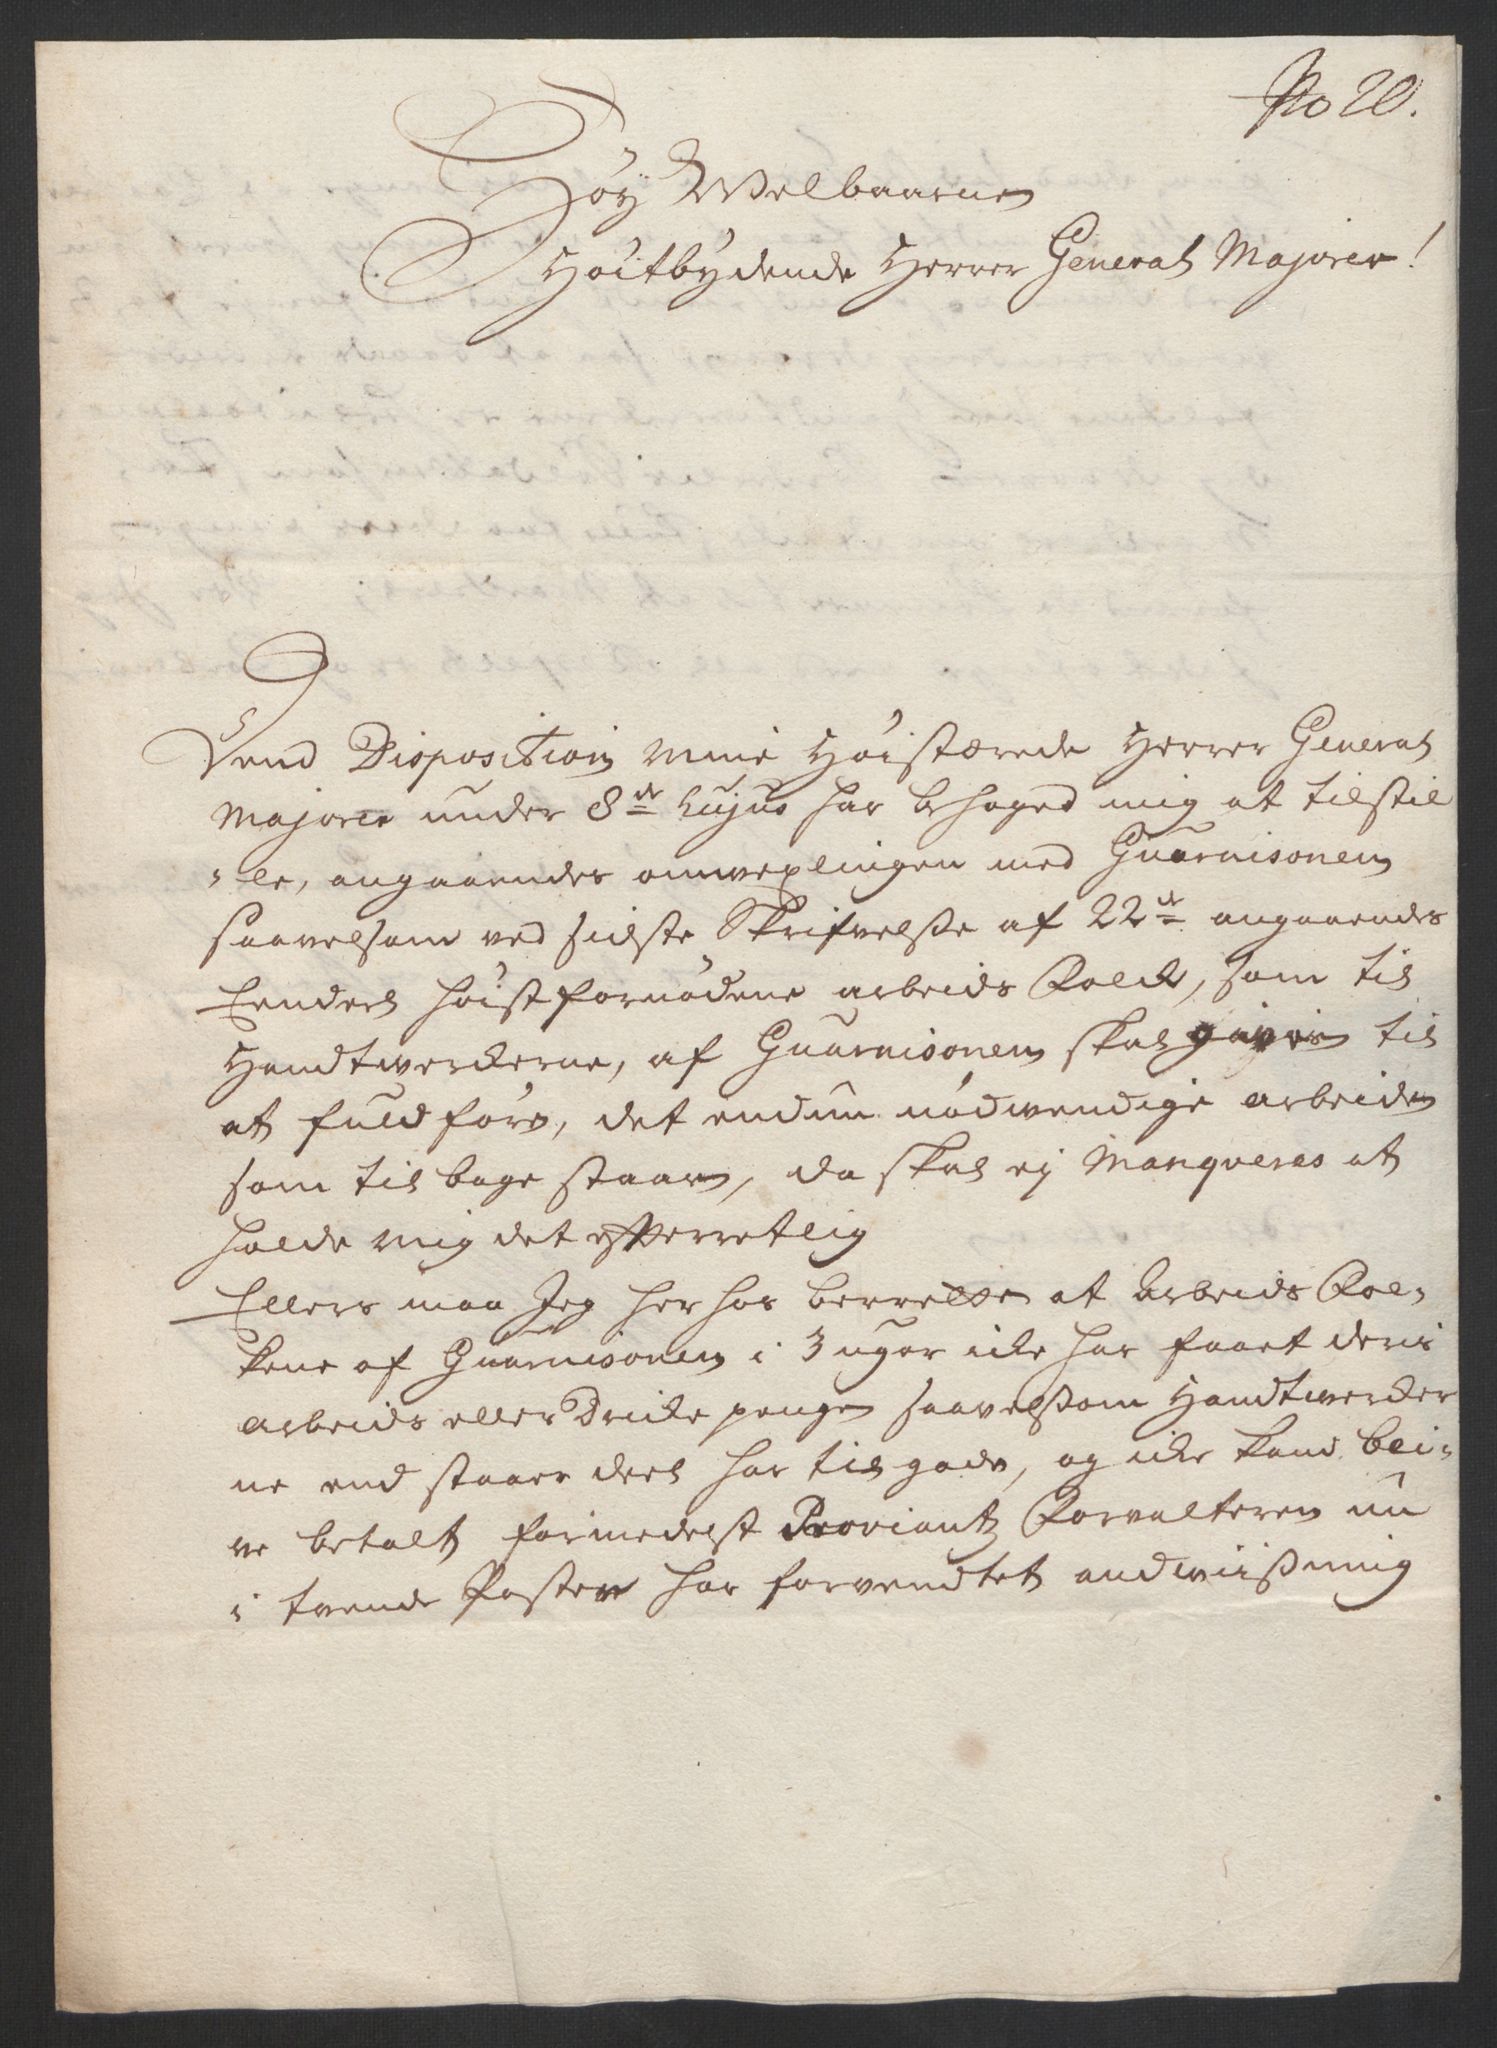 No 20.
Høy Welbaarne
Høitbydende Herrer General Majorer!
Dend Disposition mine Høistærede Herrer General
Majorer under 8de hujus har behaged mig at tilstil
le, angaaendes omvexlingen med Guarnisonen
saavelsom ved sidste Skrifvelße af 22de angaaendes
Eendeel høistfornødene arbeids Folck, som til
Handtwerckerne, af Guarnisonen skal gives til
at fuldføre, det endnu nødwendige arbeide
som tilbage staar, da skal ej Manqveres at
holde mig det efterretlig
Ellers maa Jeg herhos berrette at Arbeids Fol-
kene af Guarnisonen i 3 uger icke har faaet deris
arbeids eller Dricke penge saavelsom Handtwercker
ne end større deel har til gode, og icke kand bli-
ve betalt formedelst Proviant Forvalteren nu
i tvende Poster har forvendtet andwiißning